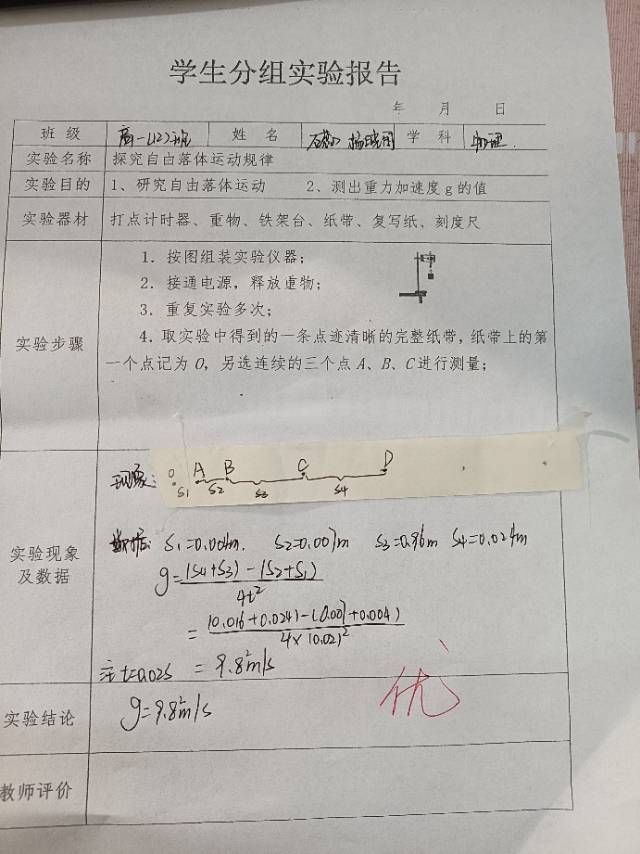 学生分组实验报告
年 月 日
班级 高一(12)班 姓名 学科 物理
实验名称 探究自由落体运动规律
实验目的 1、研究自由落体运动 2、测出重力加速度 g 的值
实验器材 打点计时器、重物、铁架台、纸带、复写纸、刻度尺
1. 按图组装实验仪器；
2. 接通电源，释放重物；
3. 重复实验多次；
实验步骤
4. 取实验中得到的一条点迹清晰的完整纸带，纸带上的第
一个点记为 O，另选连续的三个点 A、B、C 进行测量；
现象: O A B C D
S1 S2 S3 S4
实验现象及数据
数据: S1=0.004m. S2=0.007m S3=0.016m S4=0.024m
g=((S4+S3)-(S2+S1))/4t²
=((0.016+0.024)-(0.007+0.004))/(4×(0.02)²)
注t=0.02s =9.8m/s²
实验结论 g=9.8m/s²
优
教师评价